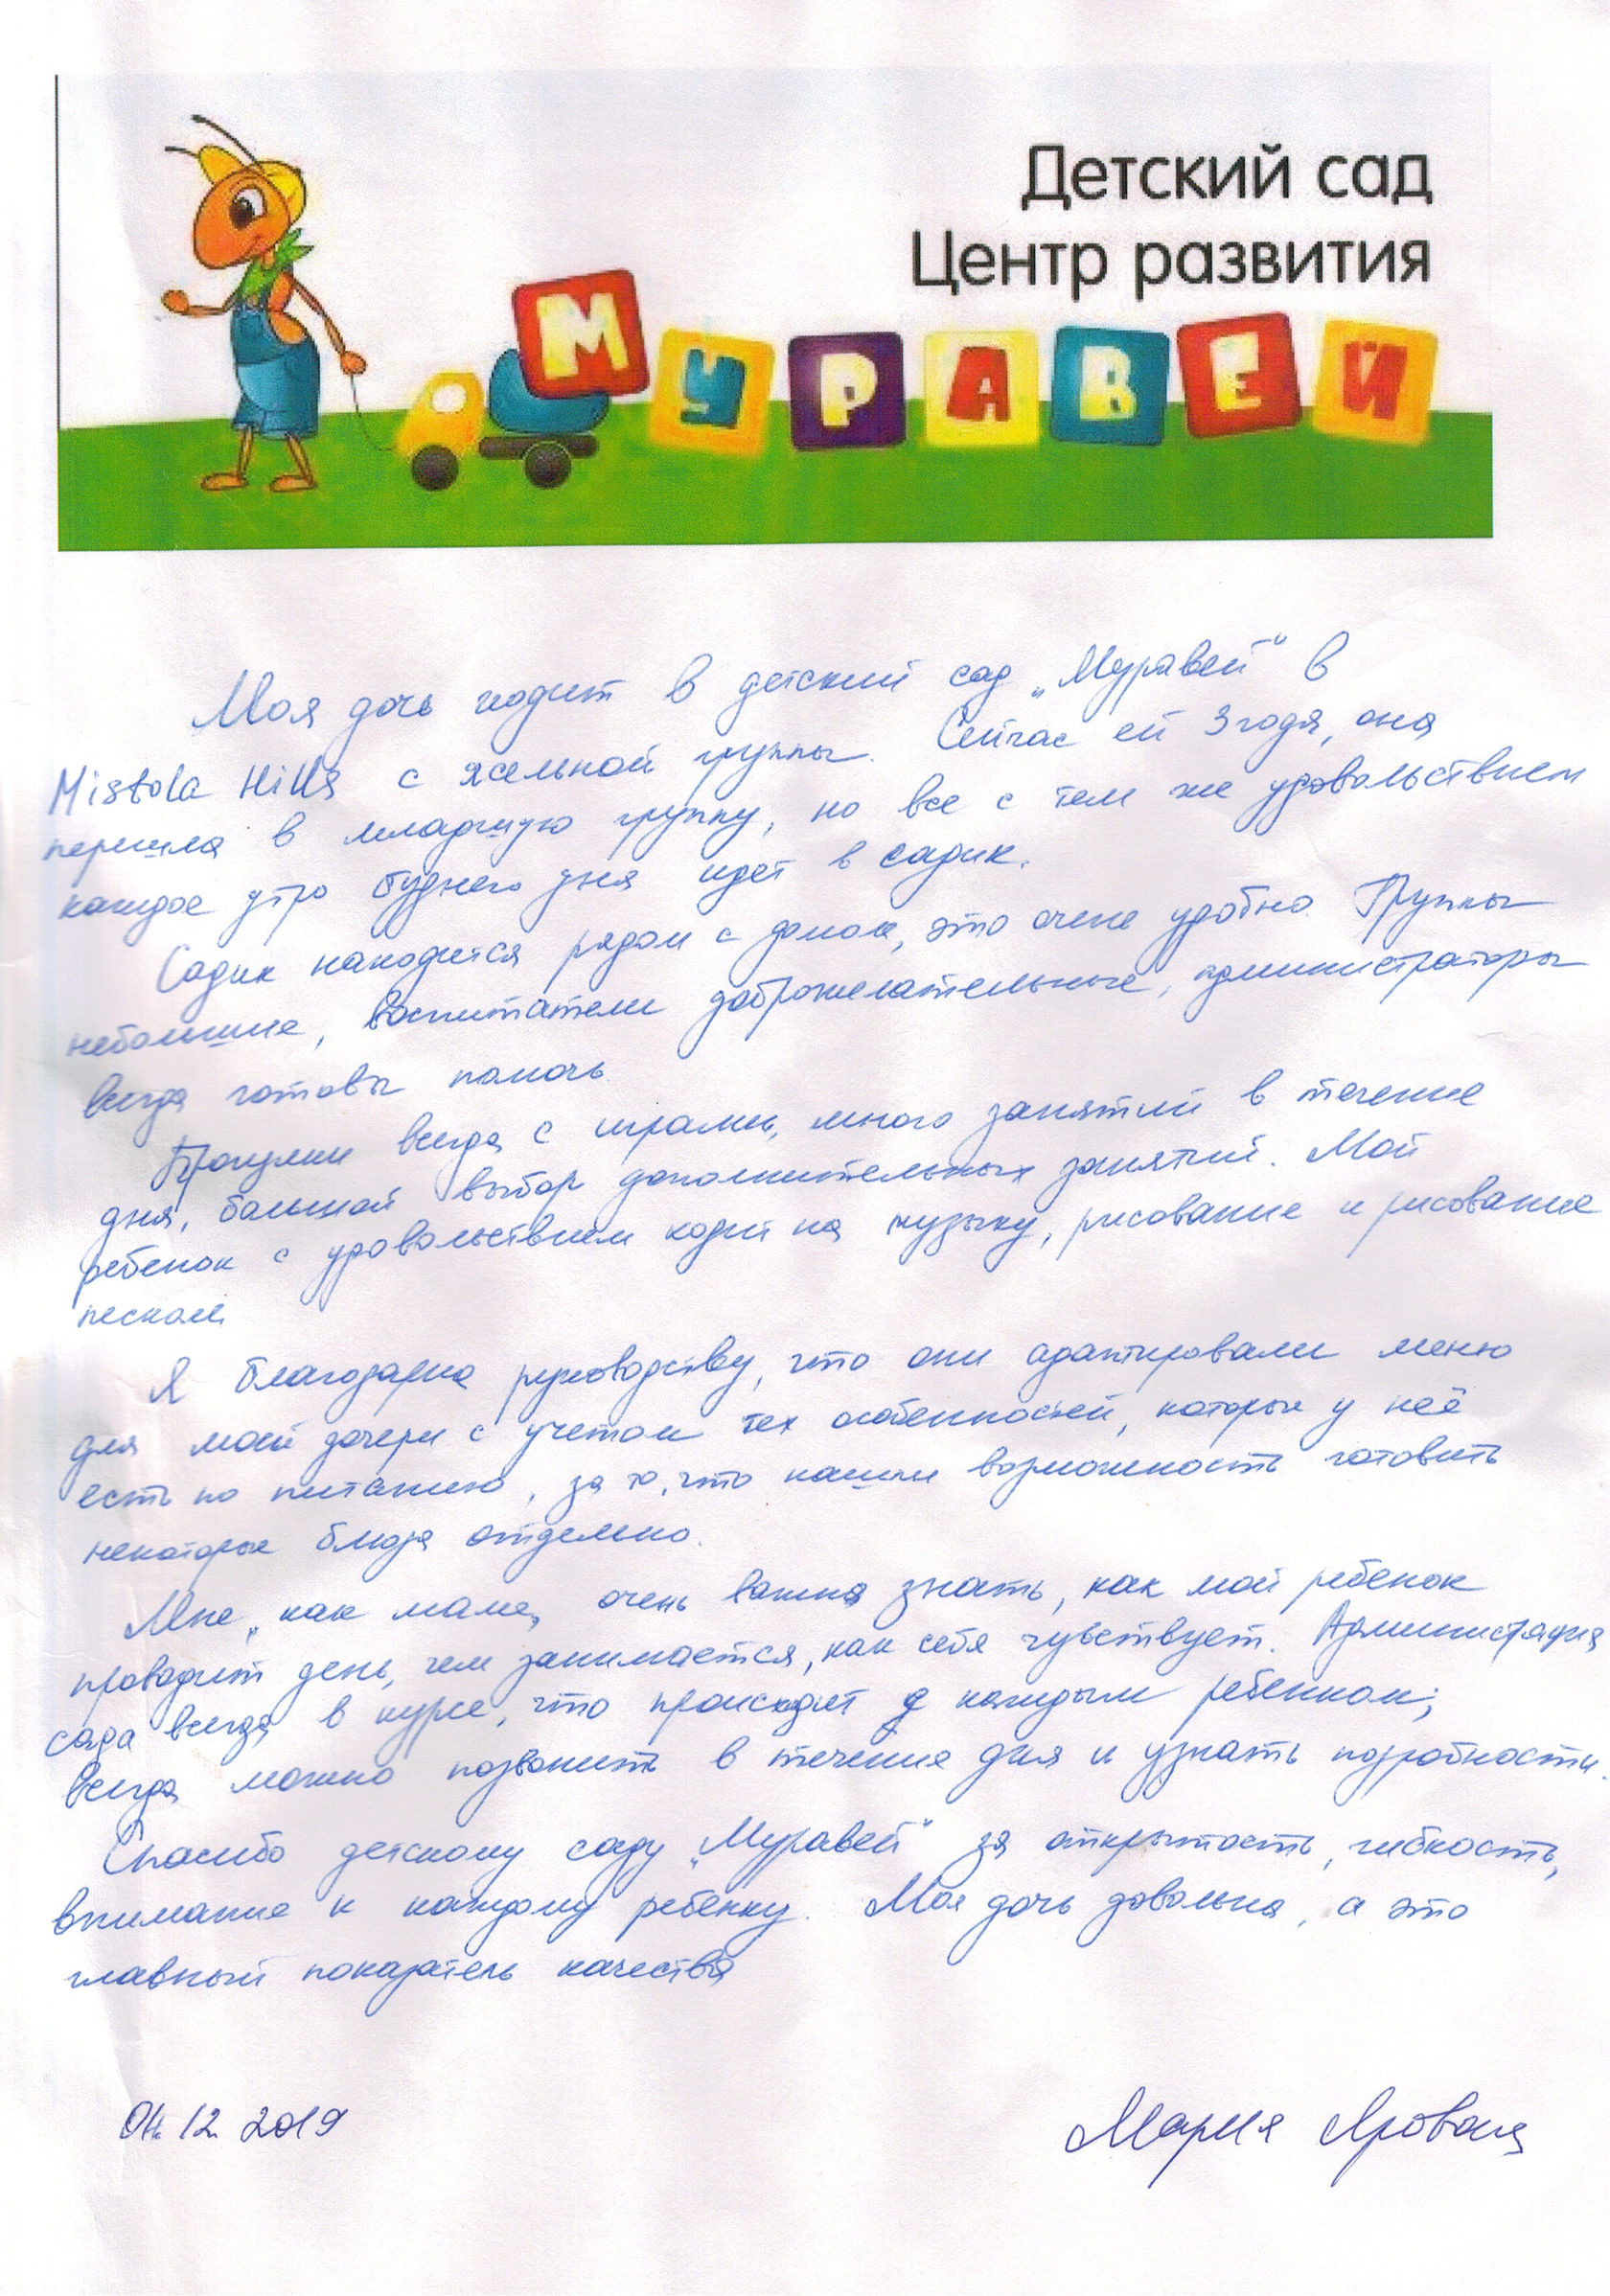 Детский сад
Центр развития
МУРАВЕЙ
Моя дочь ходит в детский сад „Муравей" в
Mistola Hills с ясельной группы. Сейчас ей 3 года, она
перешла в младшую группу, но все с тем же удовольствием
каждое утро буднего дня идет в садик.
Садик находится рядом с домом, это очень удобно. Группы
небольшие, воспитатели доброжелательные, администраторы
всегда готовы помочь.
Прогулки всегда с играми, много занятий в течение
дня, большой выбор дополнительных занятий. Мой
ребенок с удовольствием ходит на музыку, рисование и рисование
песком.
Я благодарна руководству, что они адаптировали меню
для моей дочери с учетом тех особенностей, которые у неё
есть по питанию, за то, что нашли возможность готовить
некоторые блюда отдельно.
Мне, как маме, очень важно знать, как мой ребенок
проводит день, чем занимается, как себя чувствует. Администрация
сада всегда в курсе, что происходит с каждым ребенком;
всегда можно позвонить в течение дня и узнать подробности.
Спасибо детскому саду „Муравей" за открытость, гибкость,
внимание к каждому ребенку. Моя дочь довольна, а это
главный показатель качества
04.12.2019
Мария Яровая